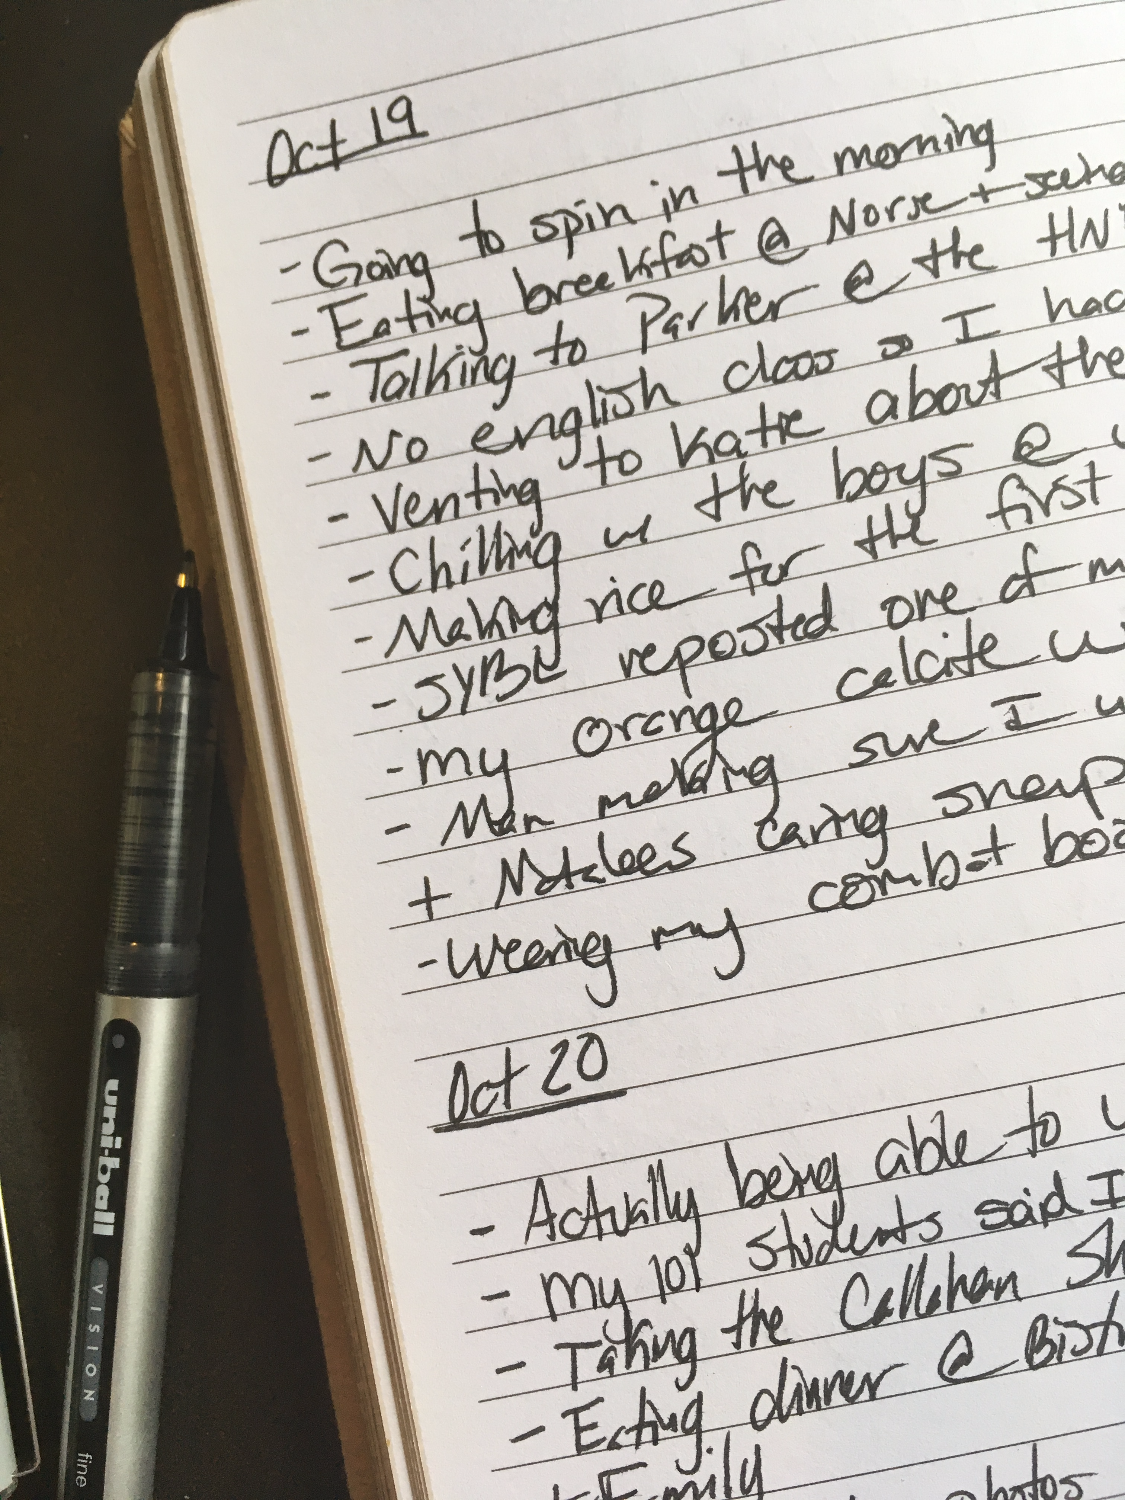 Oct 19
- Going to spin in the morning
- Eating breakfast @ Norse +
- Talking to Parker @ the HN
- No english class so I had
- Venting to Katie about the
- Chilling w the boys @
- Making rice for the first
- SYBL reposted one of m
- my orange calcite w
- Man making sure I w
+ Natalees caring
- Wearing my combat boo
Oct 20
- Actually being able to
- My 101 students said I
- Taking the Callahan Sh
- Eating dinner @ Bist
+ Emily
photos
uni-ball
VISION
fine